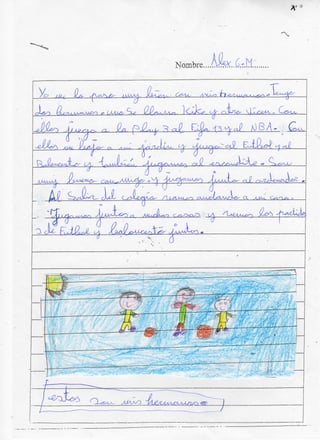 Nombre Alex G.M
Yo me lo paso muy bien con mis hermanos. Tengo
dos hermanos. uno Se llama Kike y otro Vicen. Con
ellos juego a la Play 3 al Fifa 13 y al NBA. Con
ellos me bajo a mi jardin y juego al Futbol y al
Baloncesto y también jugamos al escondite. Son
muy buenos conmigo y jugamos junto al ordenador.
Al Salir del colegio vamos andando a mi casa.
Jugamos juntos a muchas cosas y vemos los partido
s de Futbol y baloncesto juntos.
estos son mis hermanos